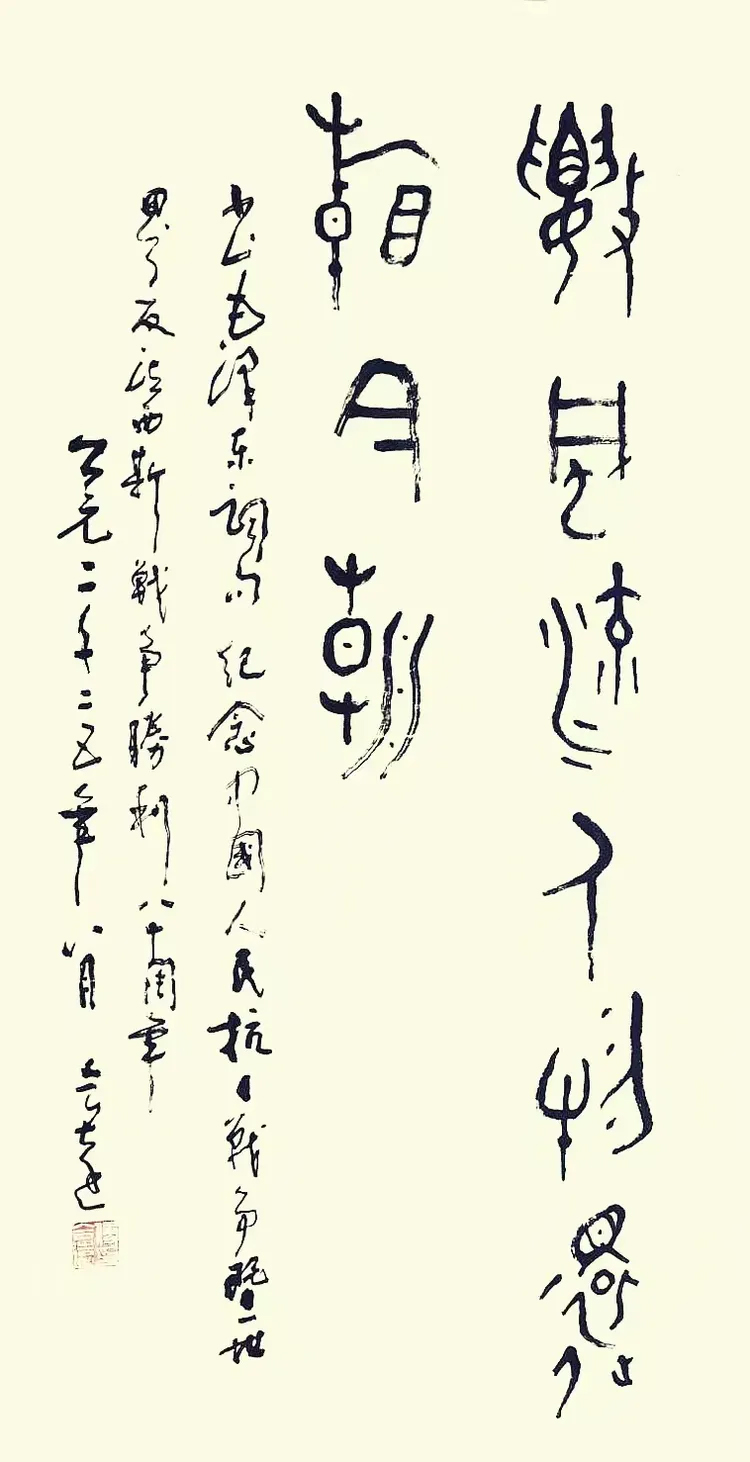 數風流人物還
看今朝
书毛泽东词句 纪念中國人民抗日戰争暨世
界反法西斯戰争勝利八十周年
公元二千二五年八月